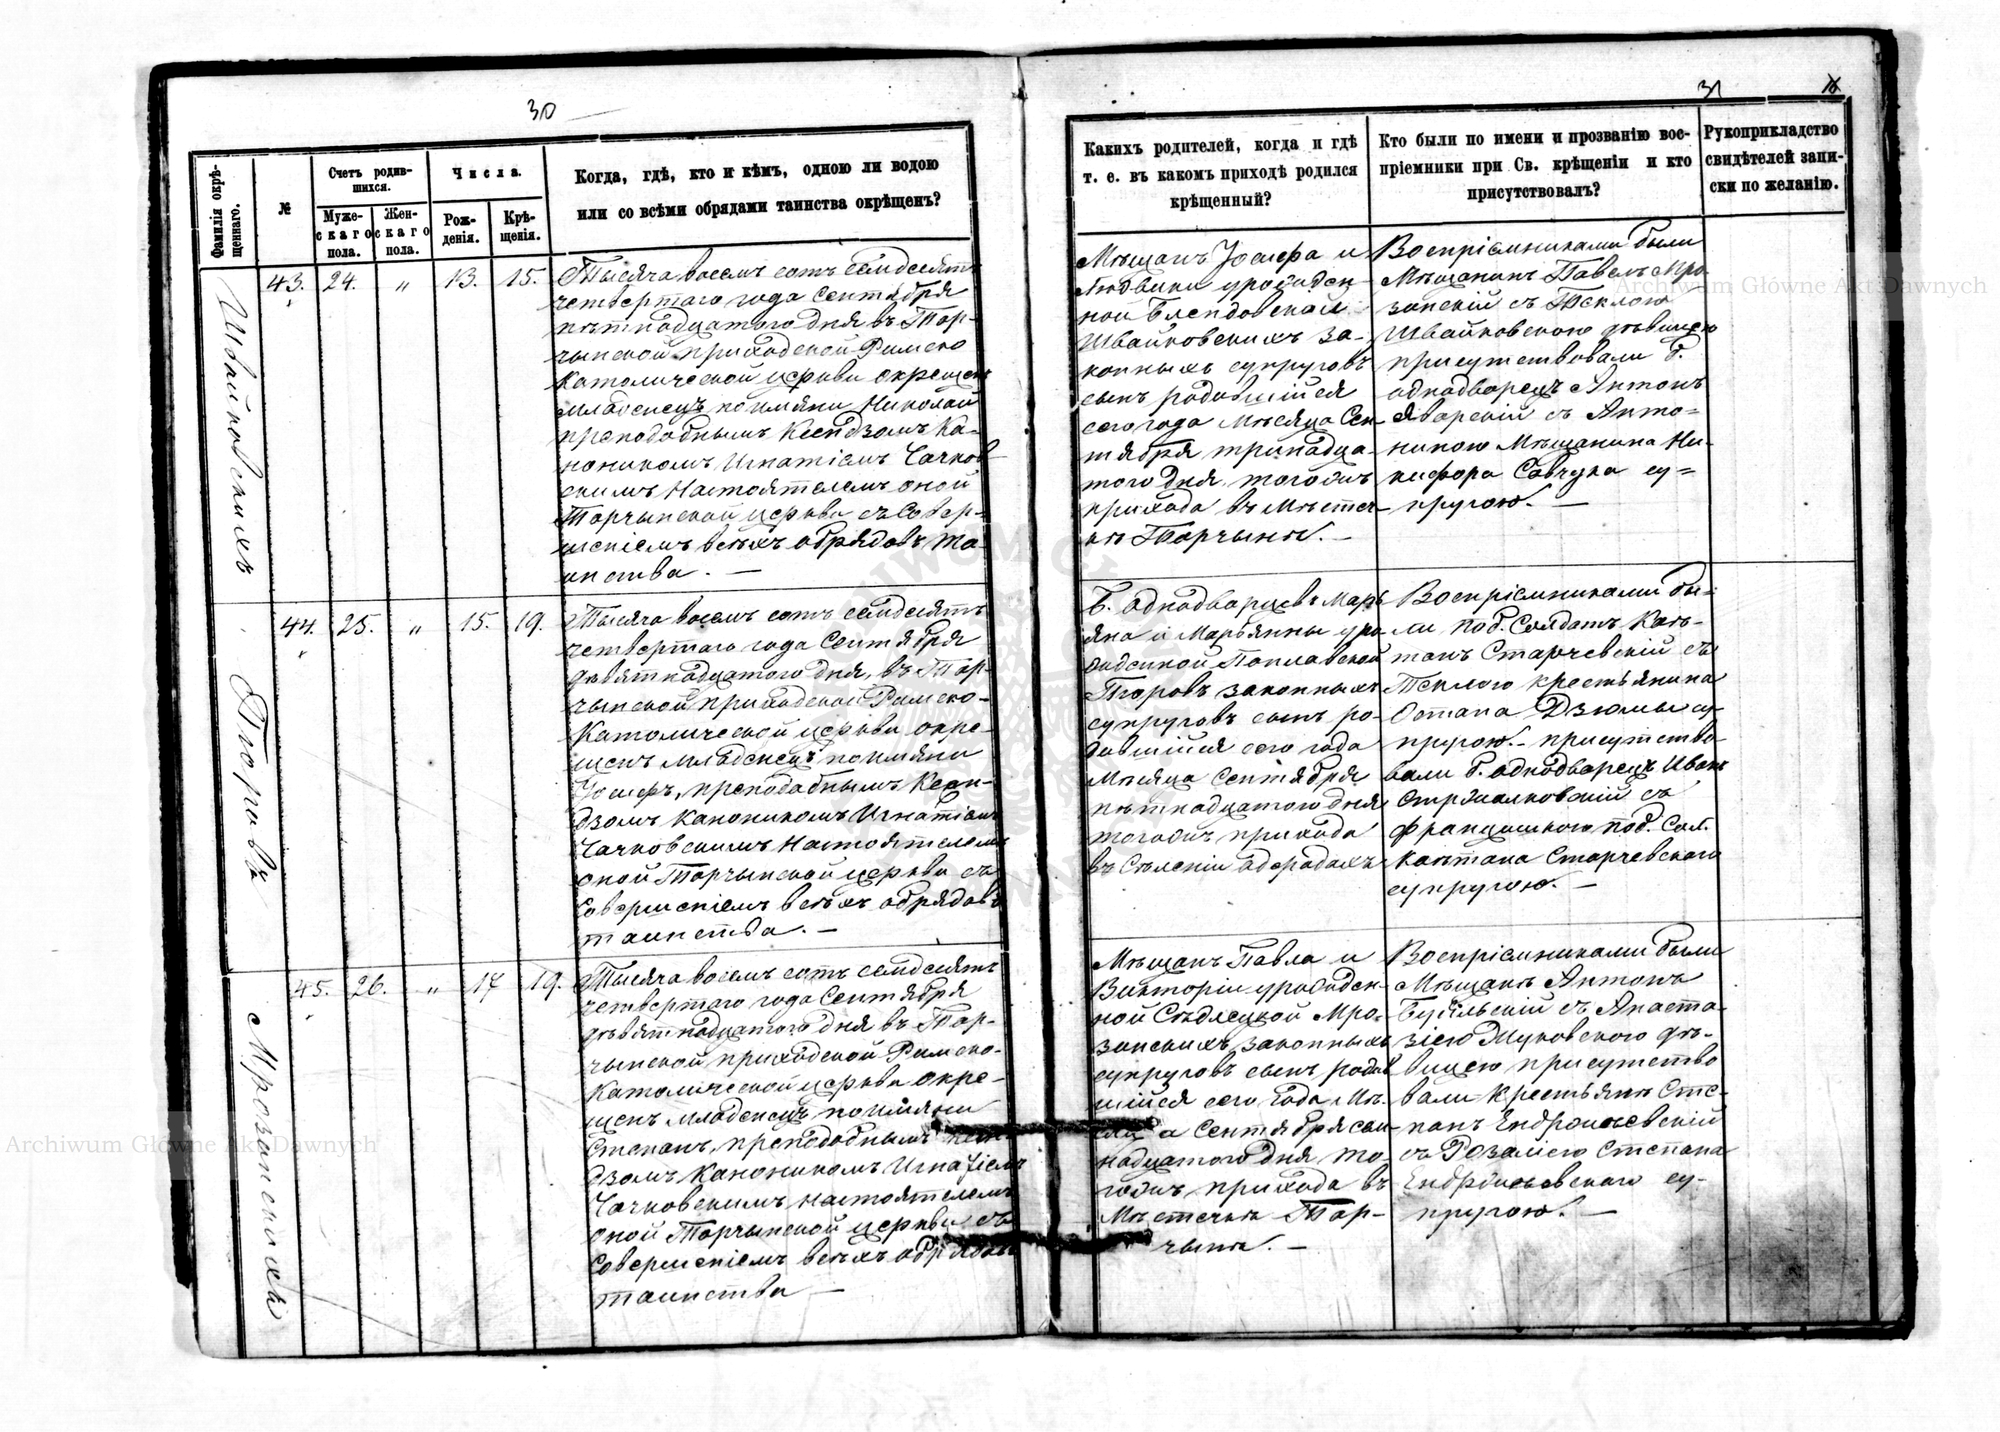 30
Фамилія окрѣ-
щеннаго.
№
Счетъ родив-
шихся.
Муже-
скаго
пола.
Жен-
скаго
пола.
Числа.
Рож-
денія.
Крѣ-
щенія.
Когда, гдѣ, кто и кѣмъ, одною ли водою
или со всѣми обрядами таинства окрѣщенъ?
Швайковскихъ
43. 24. „ 13. 15.
Тысяча восемъ сотъ семдесятъ
четвертаго года Сентября
пятнадцатого дня въ Тор-
чынской приходской Римско
Католической церкви окрещенъ
младенецъ поимяни Николай
преподобнымъ Ксендзомъ Ка-
ноникомъ Игнатіемъ Чачков
скимъ Настоятелемъ оной
Торчынской церкви съ Совер-
шеніемъ всѣхъ обрядовъ та-
инства. —
44. 25. „ 15. 19.
Тысяча восемъ сотъ семдесятъ
четвертаго года Сентября
девятнадцатого дня, въ Тор-
чынской приходской Римско-
Католической церкви окре-
щенъ младенецъ поимяни
Іосифъ, преподобнымъ Ксен-
дзомъ Каноникомъ Игнатіемъ
Чачковскимъ Настоятелемъ
оной Торчынской церкви съ
Совершеніемъ всѣхъ обрядовъ
таинства. —
Мрозинскихъ
45. 26. „ 17 19.
Тысяча восемъ сотъ семдесятъ
четвертаго года Сентября
девятнадцатого дня въ Тор-
чынской приходской Римско-
Католической церкви окре-
щенъ младенецъ поимяни
Степанъ, преподобнымъ Ксен-
дзомъ Каноникомъ Игнатіемъ
Чачковскимъ Настоятелемъ
оной Торчынской церкви съ
Совершеніемъ всѣхъ обрядовъ
таинства —
31
Какихъ родителей, когда и гдѣ
т. е. въ какомъ приходѣ родился
крѣщенный?
Кто были по имени и прозванію вос-
пріемники при Св. крѣщеніи и кто
присутствовалъ?
Рукоприкладство
свидѣтелей запи-
ски по желанію.
Мѣщанъ Іосифа и
Людвики урожден
ной
Швайковскихъ за-
конныхъ супруговъ
сынъ родившійся
сего года Мѣсяца Сен
тября тринадца-
того дня тогожъ
прихода въ Мѣстеч-
кѣ Торчынѣ. —
Воспріемниками были
Мѣщанинъ Павелъ Мро-
зинскій съ Теклою
Швайковскою дѣвицею
присутствовали б.
однодворецъ Антонъ
Яворскій съ Анто-
ниною Мѣщанина Ни-
кифора Савчука су-
пругою. —
Б. однодворцевъ Марь
яна и Марьянны уро
жденной Поплавской
законныхъ
супруговъ сынъ ро-
дившійся сего года
Мѣсяца Сентября
пятнадцатого дня
тогожъ прихода
въ Сѣленіи
Воспріемниками бы-
ли под. Солдатъ Каэ-
танъ Старчевскій съ
Теклою крестьянина
Остапа Дзюмы су-
пругою. — присутство-
вали б. однодворецъ Иванъ
Стржалковскій съ
Францишкою под. Сол.
Каэтана Старчевскаго
супругою. —
Мѣщанъ Павла и
Викторіи урожден-
ной Сѣдлецкой Мро-
зинскихъ законныхъ
супруговъ сынъ родив
шійся сего года Мѣ-
сяца Сентября сем-
надцатого дня то-
гожъ прихода въ
Мѣстечкѣ Тор-
чынѣ. —
Воспріемниками были
Мѣщанъ Антонъ
съ Анаста-
зіею Жуковскою дѣ-
вицею присутство
вали Крестьянъ Сте-
панъ
съ Розаліею Степана
су-
пругою. —
Archiwum Główne Akt Dawnych
Archiwum Główne Akt Dawnych